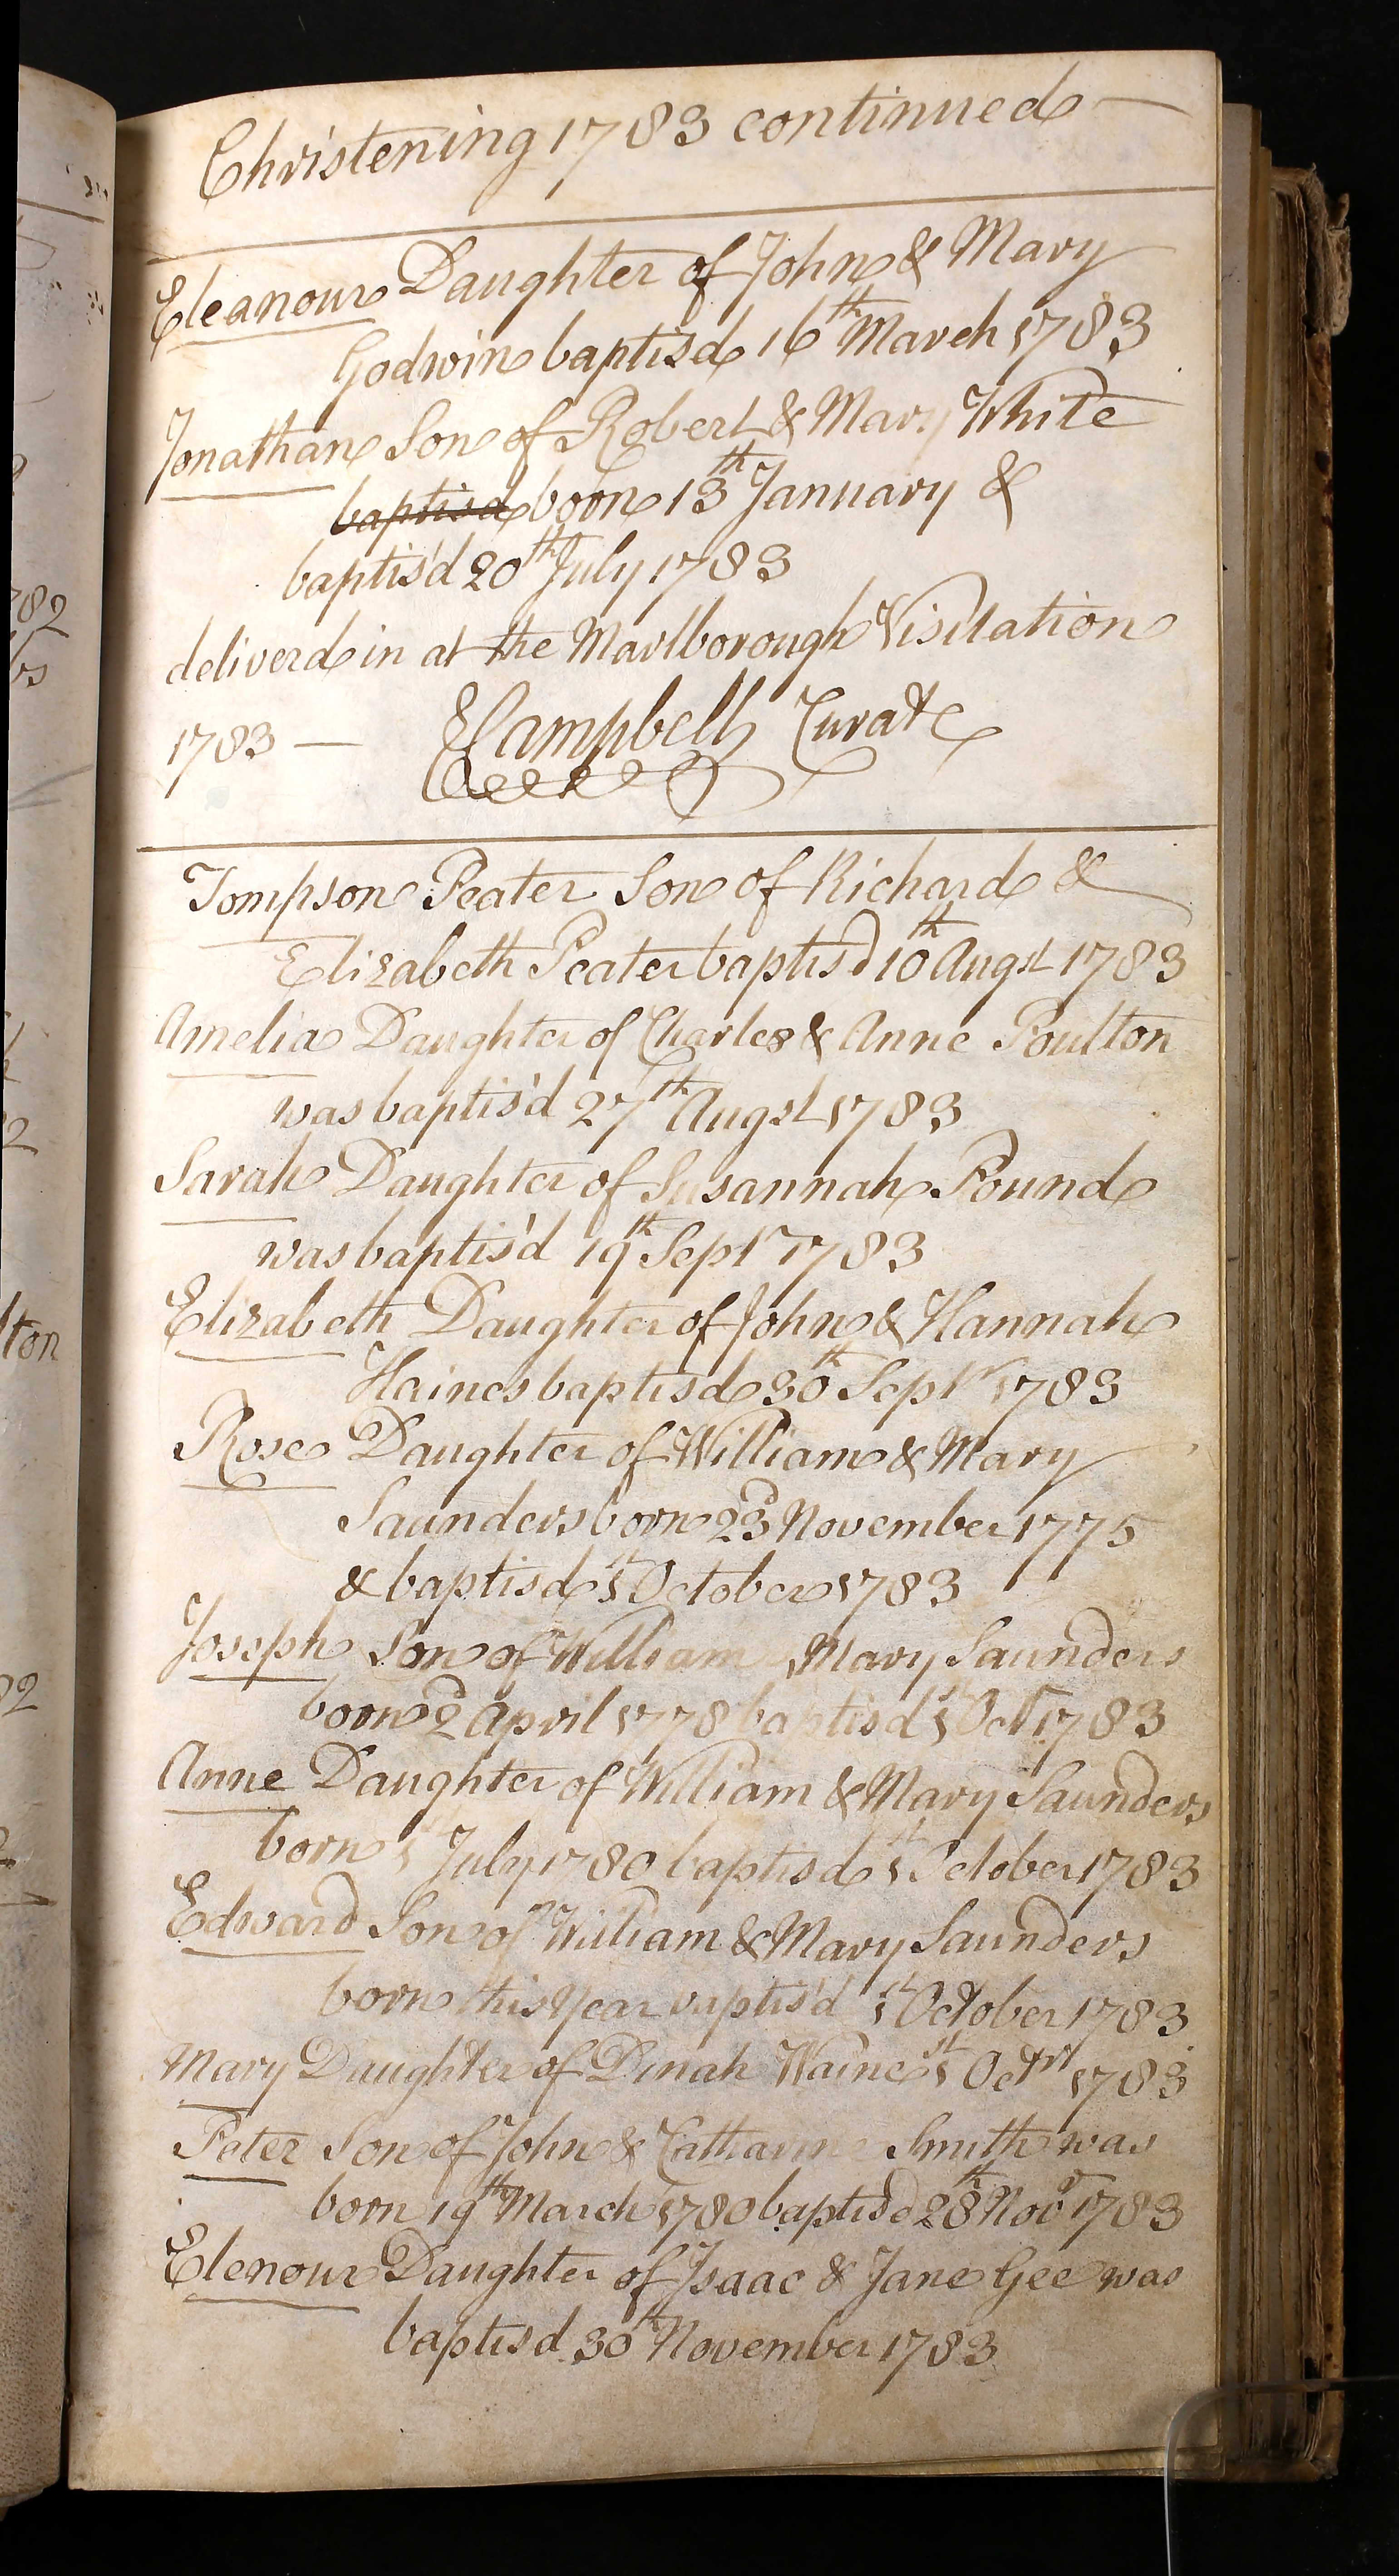 Christening 1783 continued —
Eleanour Daughter of John & Mary
Godwin baptisd 16th March 1783
Jonathan Son of Robert & Mary White
baptisd born 13th January &
baptis'd 20th July 1783
deliverd in at the Marlborough Visitation
1783 — ECampbell Curate
Tompson Peater Son of Richard &
Elizabeth Peater baptisd 10th Augst 1783
Amelia Daughter of Charles & Anne Poulton
was baptis'd 27th Augst 1783
Sarah Daughter of Susannah Pound
was baptis'd 19th Septr 1783
Elizabeth Daughter of John & Hannah
Haines baptisd 30th Septr 1783
Rose Daughter of William & Mary
Saunders born 23d November 1775
& baptisd 1st October 1783
Joseph Son of William Mary Saunders
born 2d April 1778 baptisd 1st Octr 1783
Anne Daughter of William & Mary Saunders
born 1 July 1780 baptisd 1st October 1783
Edward Son of William & Mary Saunders
born this Year baptis'd 1st October 1783
Mary Daughter of Dinah Waine 1st Octr 1783
Peter Son of John & Catharine Smith was
born 19th March 1780 baptisd 28th Novr 1783
Elenour Daughter of Isaac & Jane Gee was
baptisd 30th November 1783
782
lton